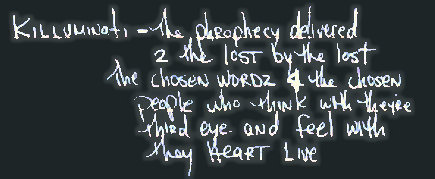 KILLUMINATI - the pheophecy delivered
2 the lost by the lost
The CHOSEN WORDZ 4 the CHOSEN
people who think with theire
third eye and feel with
they HEART LIVE